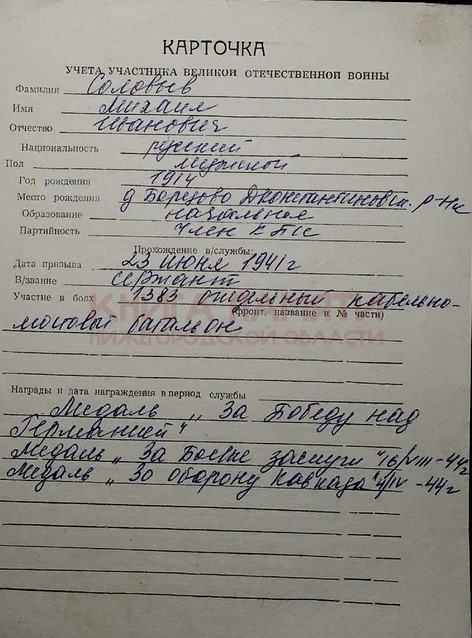 КАРТОЧКА
УЧЕТА УЧАСТНИКА ВЕЛИКОЙ ОТЕЧЕСТВЕННОЙ ВОЙНЫ
Фамилия Соловьев
Имя Михаил
Отчество Иванович
Национальность русский
Пол мужской
Год рождения 1914
Место рождения д Борцово Дконстантиновск. р-н
Образование начальное
Партийность член КПСС
Прохождение в/службы:
Дата призыва 23 июня 1941 г
В/звание сержант
Участие в боях 1383 отдельный кабельно-
(фронт, название и № части)
мостовый батальон
КНИГА ПАМЯТИ
НИЖЕГОРОДСКОЙ ОБЛАСТИ
Награды и дата награждения в период службы
Медаль „За Победу над
Германией"
Медаль „За Боевые заслуги" 16/VIII-44г
Медаль „За оборону Кавказа" /IV-44г